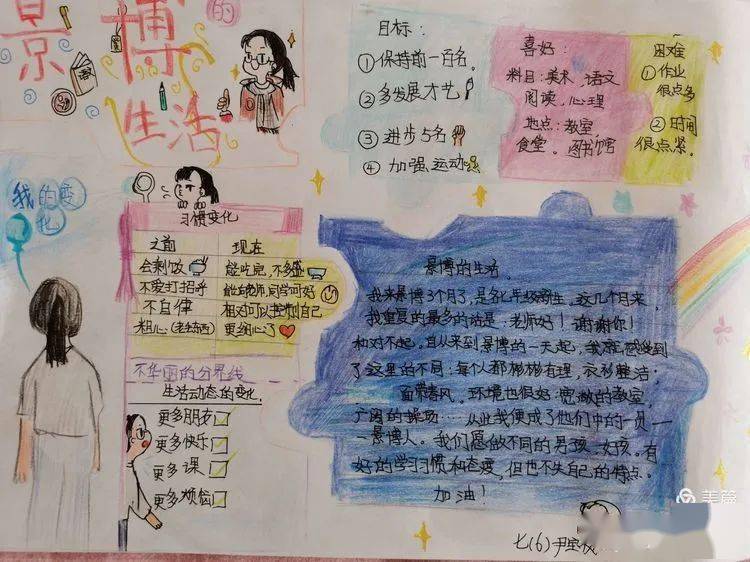 景博的
生活
目标：
①保持前一百名。
②多发展才艺
③进步5名
④加强运动
喜好：
科目：美术、语文
阅读、心理
地点：教室、
食堂、图书馆
困难
①作业
很点多
②时间
很点紧。
我的变
化
习惯变化
之前 现在
会剩饭 能吃完，不多盛
不爱打招乎 能与老师、同学问好
不自律 相对可以控制自己
粗心(老转西) 更细心了
不华丽的分界线
生活动态的变化
更多朋友
更多快乐
更多课
更多烦恼
景博的生活
我来景博3个月了，是名七年级新生，这几个月来，
我重复的最多的话是：老师好！谢谢你！
和对不起，自从来到景博的一天起，我就感受到
了这里的不同：每个人都彬彬有理，衣衫整洁；
面带春风。环境也很好：宽敞的教室，
广阔的操场……从此我便成了他们中的一员——
景博人。我们愿做不同的男孩、女孩。有
好的学习习惯和态度，但也不失自己的特点。
加油！
美篇
七(6)尹